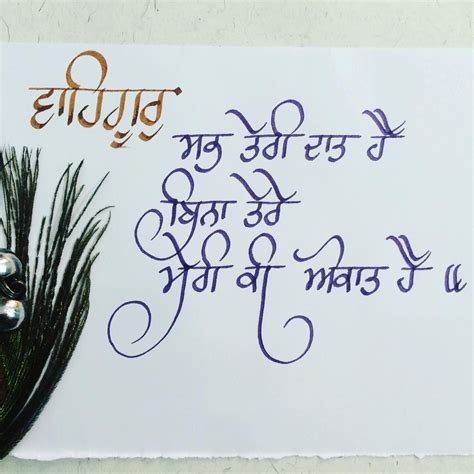 ਵਾਹਿਗੁਰੂ
ਸਭ ਤੇਰੀ ਦਾਤ ਹੈ
ਬਿਨਾ ਤੇਰੇ
ਮੇਰੀ ਕੀ ਔਕਾਤ ਹੈ ॥